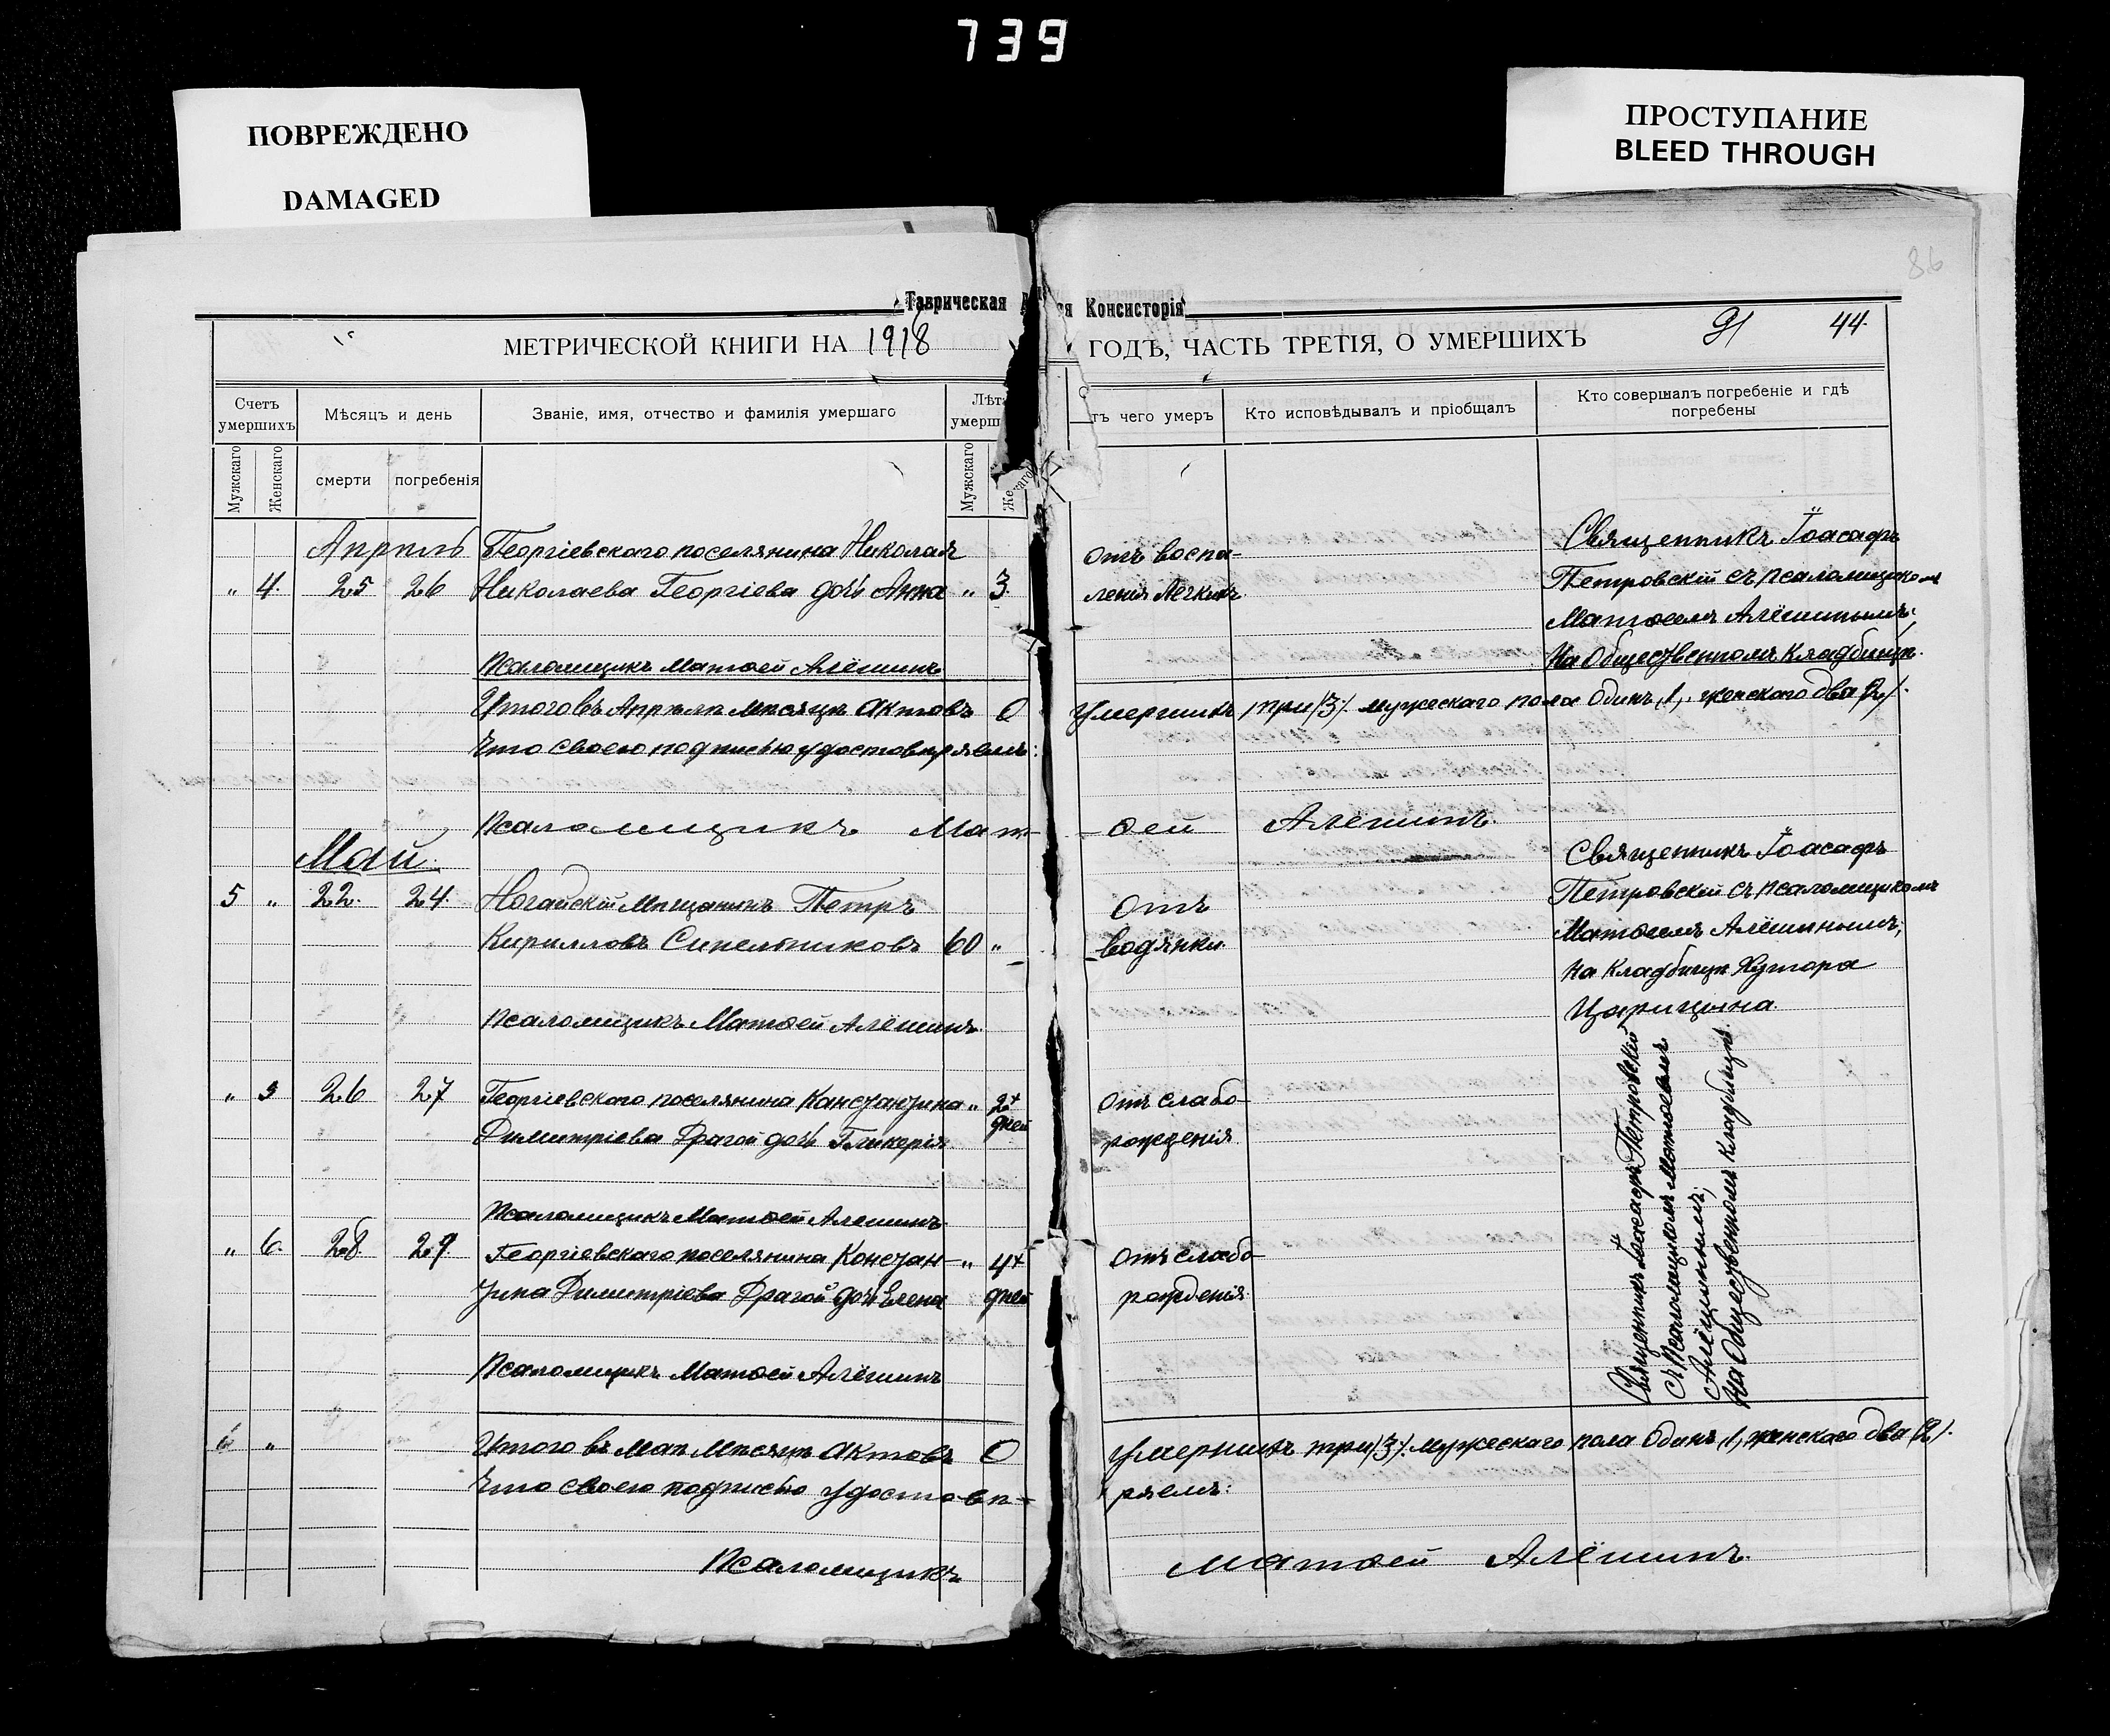 739
ПОВРЕЖДЕНО
DAMAGED
ПРОСТУПАНИЕ
BLEED THROUGH
86
Таврическая
я Консисторія
МЕТРИЧЕСКОЙ КНИГИ НА 1918
ГОДЪ, ЧАСТЬ ТРЕТІЯ, О УМЕРШИХЪ
91 44.
Счетъ умершихъ
Мѣсяцъ и день
Званіе, имя, отчество и фамилія умершаго
Лѣта умерш
тъ чего умеръ
Кто исповѣдывалъ и пріобщалъ
Кто совершалъ погребеніе и гдѣ
погребены
Мужскаго Женскаго смерти погребенія Мужскаго Же
Апрѣль Георгіевскаго поселянина Николая
" 4. 25 26 Николаева Георгіева дочь Анна " 3.
отъ воспа-
ленія легкихъ.
Священникъ Іоасафъ
Петровскій съ псаломщикомъ
Матѳеемъ Алёшинымъ;
На Общественномъ кладбищѣ.
Псаломщикъ Матѳей Алёшинъ
Итого въ Апрѣлѣ мѣсяцѣ актовъ О умершихъ три (3). мужескаго пола одинъ, 1, женскаго два (2).
Что своею подписью удостовѣряемъ:
Псаломщикъ Мат-ѳей Алёшинъ.
Май.
5 " 22. 24. Ногайскій Мѣщанинъ Петръ
Кирилловъ Синельниковъ 60 "
Отъ
водянки.
Священникъ Іоасафъ
Петровскій съ псаломщикомъ
Матѳеемъ Алёшинымъ;
На кладбищѣ Хутора
Царицына.
Псаломщикъ Матѳей Алёшинъ.
" 5 26 27 Георгіевскаго поселянина Константина " 2 х
Димитріева Драгой дочь Гликерія дней
Отъ слабо-
рожденія
Псаломщикъ Матѳей Алешинъ.
" 6. 28 29. Георгіевскаго поселянина Констан- " 4 х
тина Димитріева Драгой дочь Елена дней
Отъ слабо-
рожденія
Священникъ Іоасафъ Петровскій
съ Псаломщикомъ Матѳеемъ
Алёшинымъ;
На Общественномъ кладбищѣ
Псаломщикъ Матѳей Алёшинъ
6 " Итого въ Маѣ Мѣсяцѣ актовъ О умершихъ три (3). мужескаго пола одинъ, 1, женскаго два (2).
Что своею подписью удостовѣ-ряемъ:
Псаломщикъ Матѳей Алёшинъ.